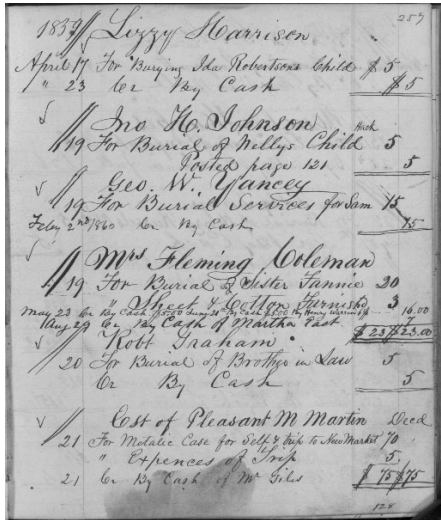 257
1859 // Lizzy Harrison
April 17 For Burying Ida Robertsons Child $ 5
" 23 Cr By Cash $ 5
// Jno H. Johnson
19 For Burial of Nellys Child 5
Posted page 121 5
// Geo. W. Yancey
19 For Burial Services for Sam 15
Feby 2nd 1860 Cr By Cash 15
// Mrs Fleming Coleman
19 For Burial of Sister Fannie 20
" Sheet & Cotton Furnishd 3
May 23 Cr By Cash $5.00 By Cash $5.00 By Henry 16.00
Aug 29 Cr By Cash of Martha 7
$ 23 $ 23.00
Robt Graham
20 For Burial of Brother in Law 5
Cr By Cash 5
// Cost of Pleasant M Martin Decd
21 For Metalic Case for Self & Trip to New Market 70
" Expences of Trip 5
21 Cr By Cash of Mr Giles $ 75 $ 75